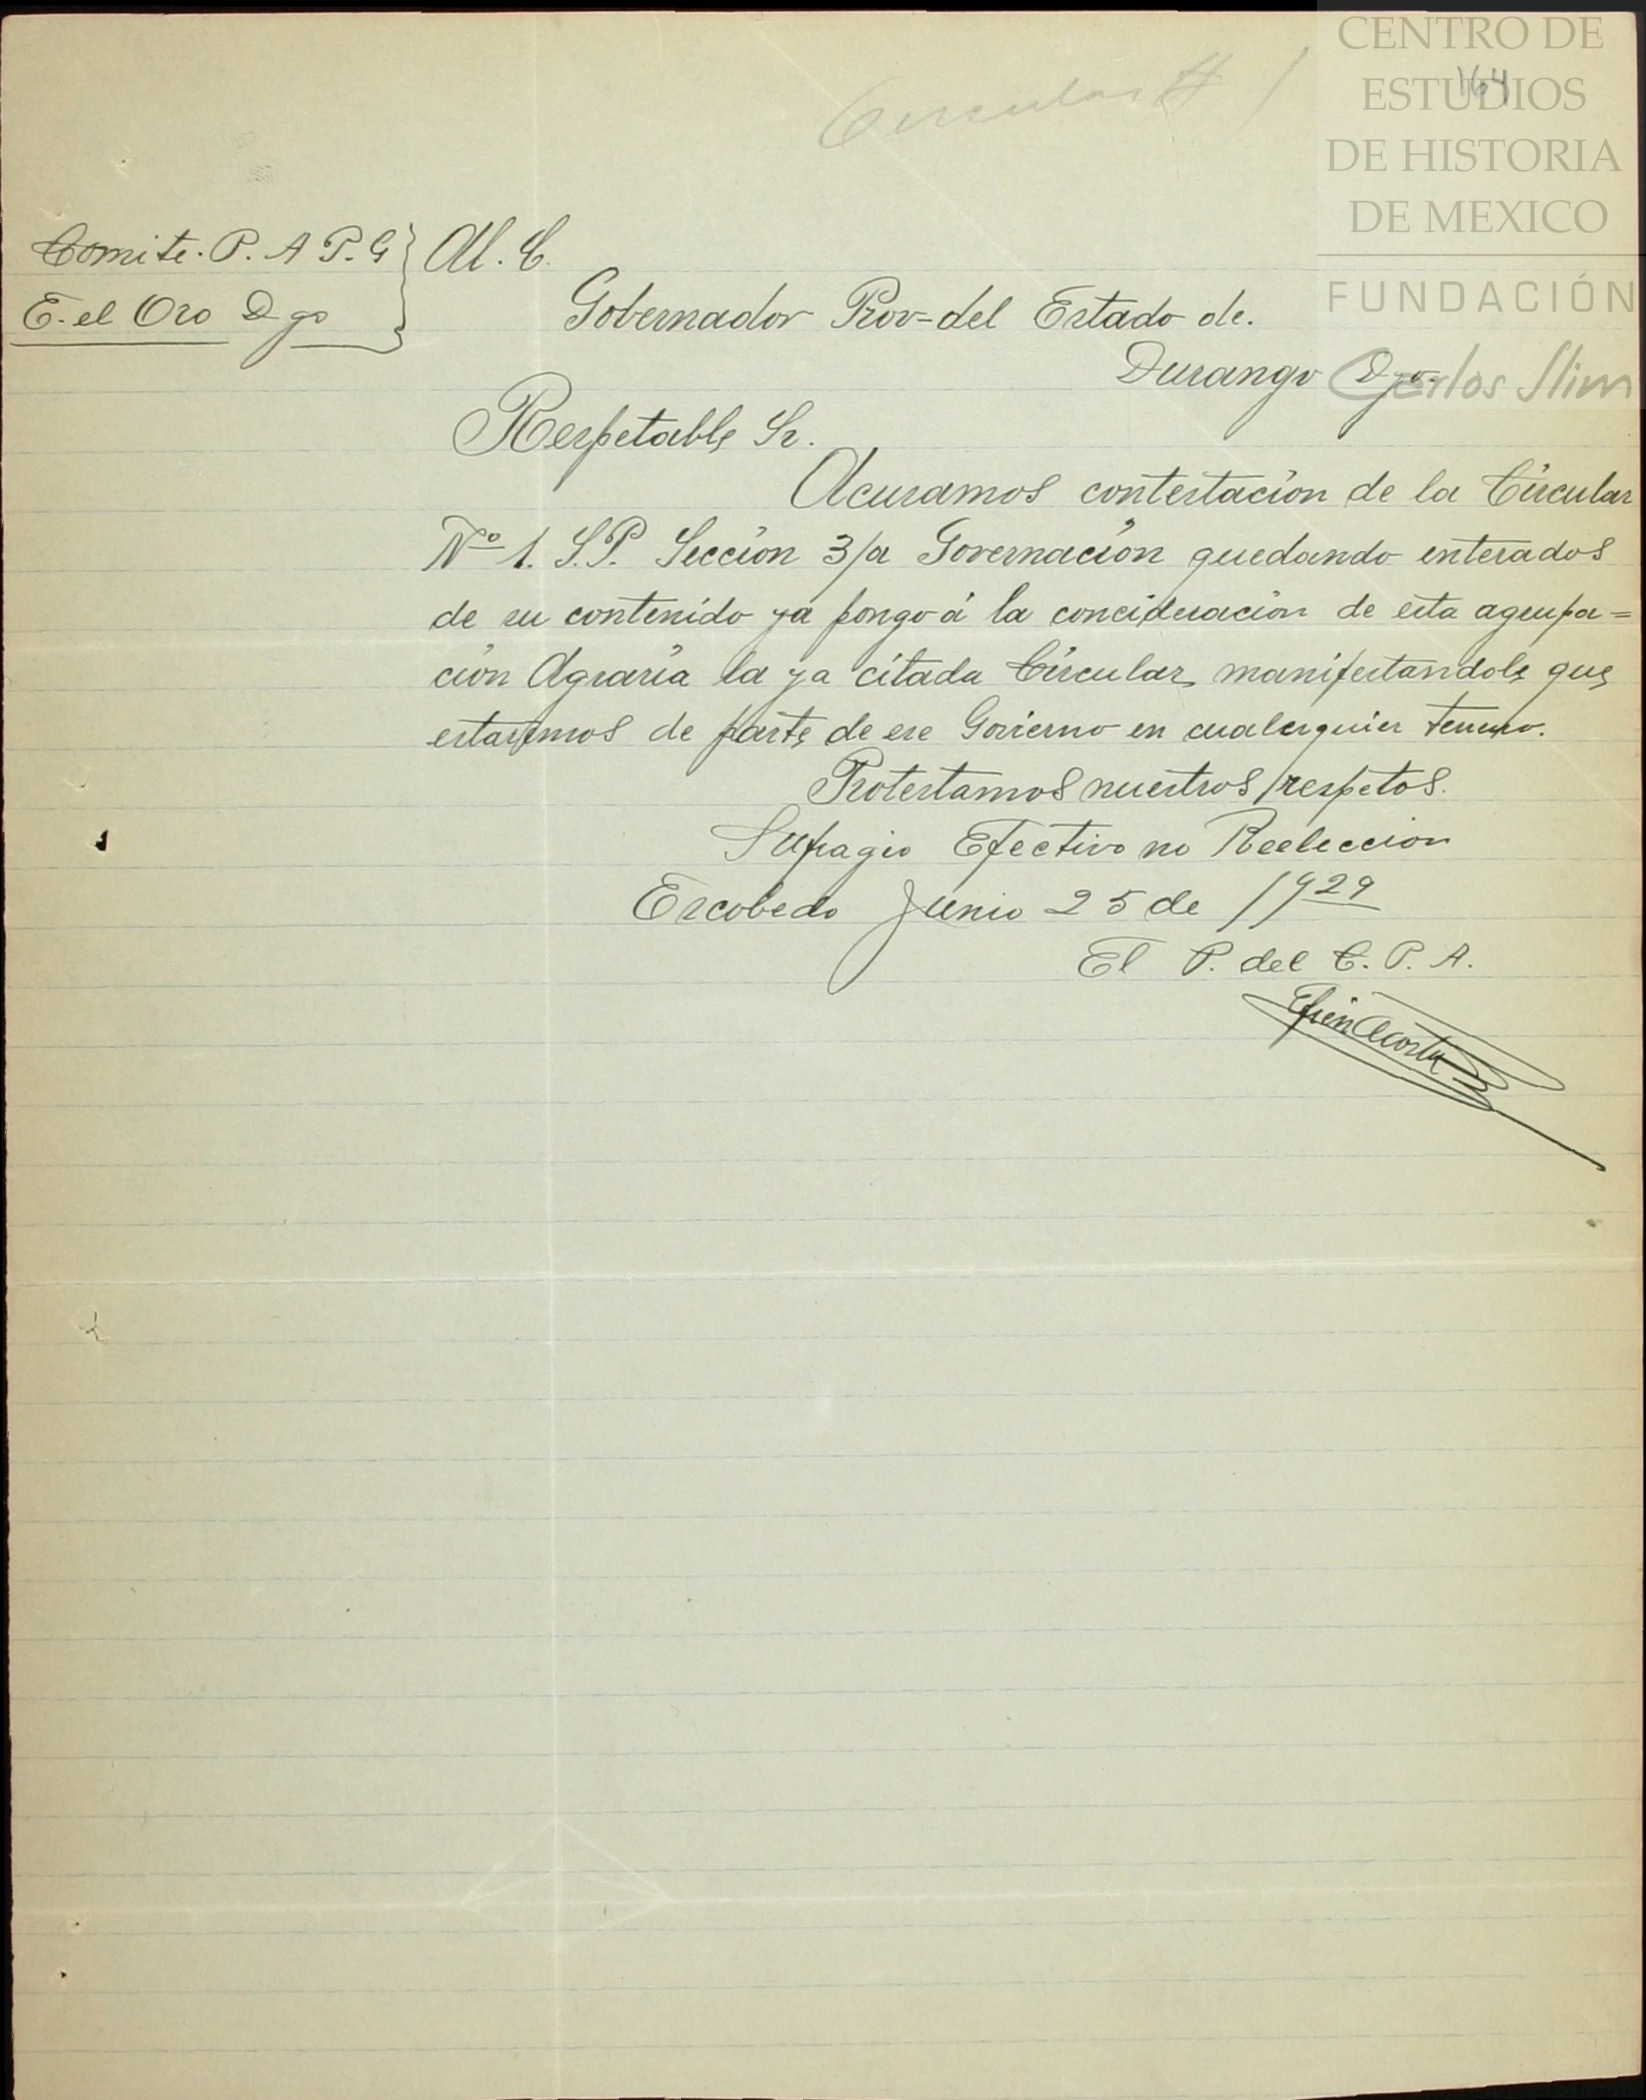 Circular # 1
164
CENTRO DE
ESTUDIOS
DE HISTORIA
DE MEXICO
FUNDACIÓN
Carlos Slim
Comite. P. A P. G
E. el Oro Dgo
Al. C.
Gobernador Prov=del Estado de.
Durango Dgo.
Respetable Sr.
Acusamos contestacion de la Circular
Nº 1. S.P. Seccion 3/a Governación quedando enterados
de su contenido ya pongo á la concideracion de esta agrupa=
cion Agraria la ya citada Circular manifestandole que
estaremos de parte de ese Govierno en cualesquier terreno.
Protestamos nuestros respetos.
Sufragio Efectivo no Reeleccion
Escobedo Junio 25 de 1929
El P. del C. P. A.
Efren Acosta